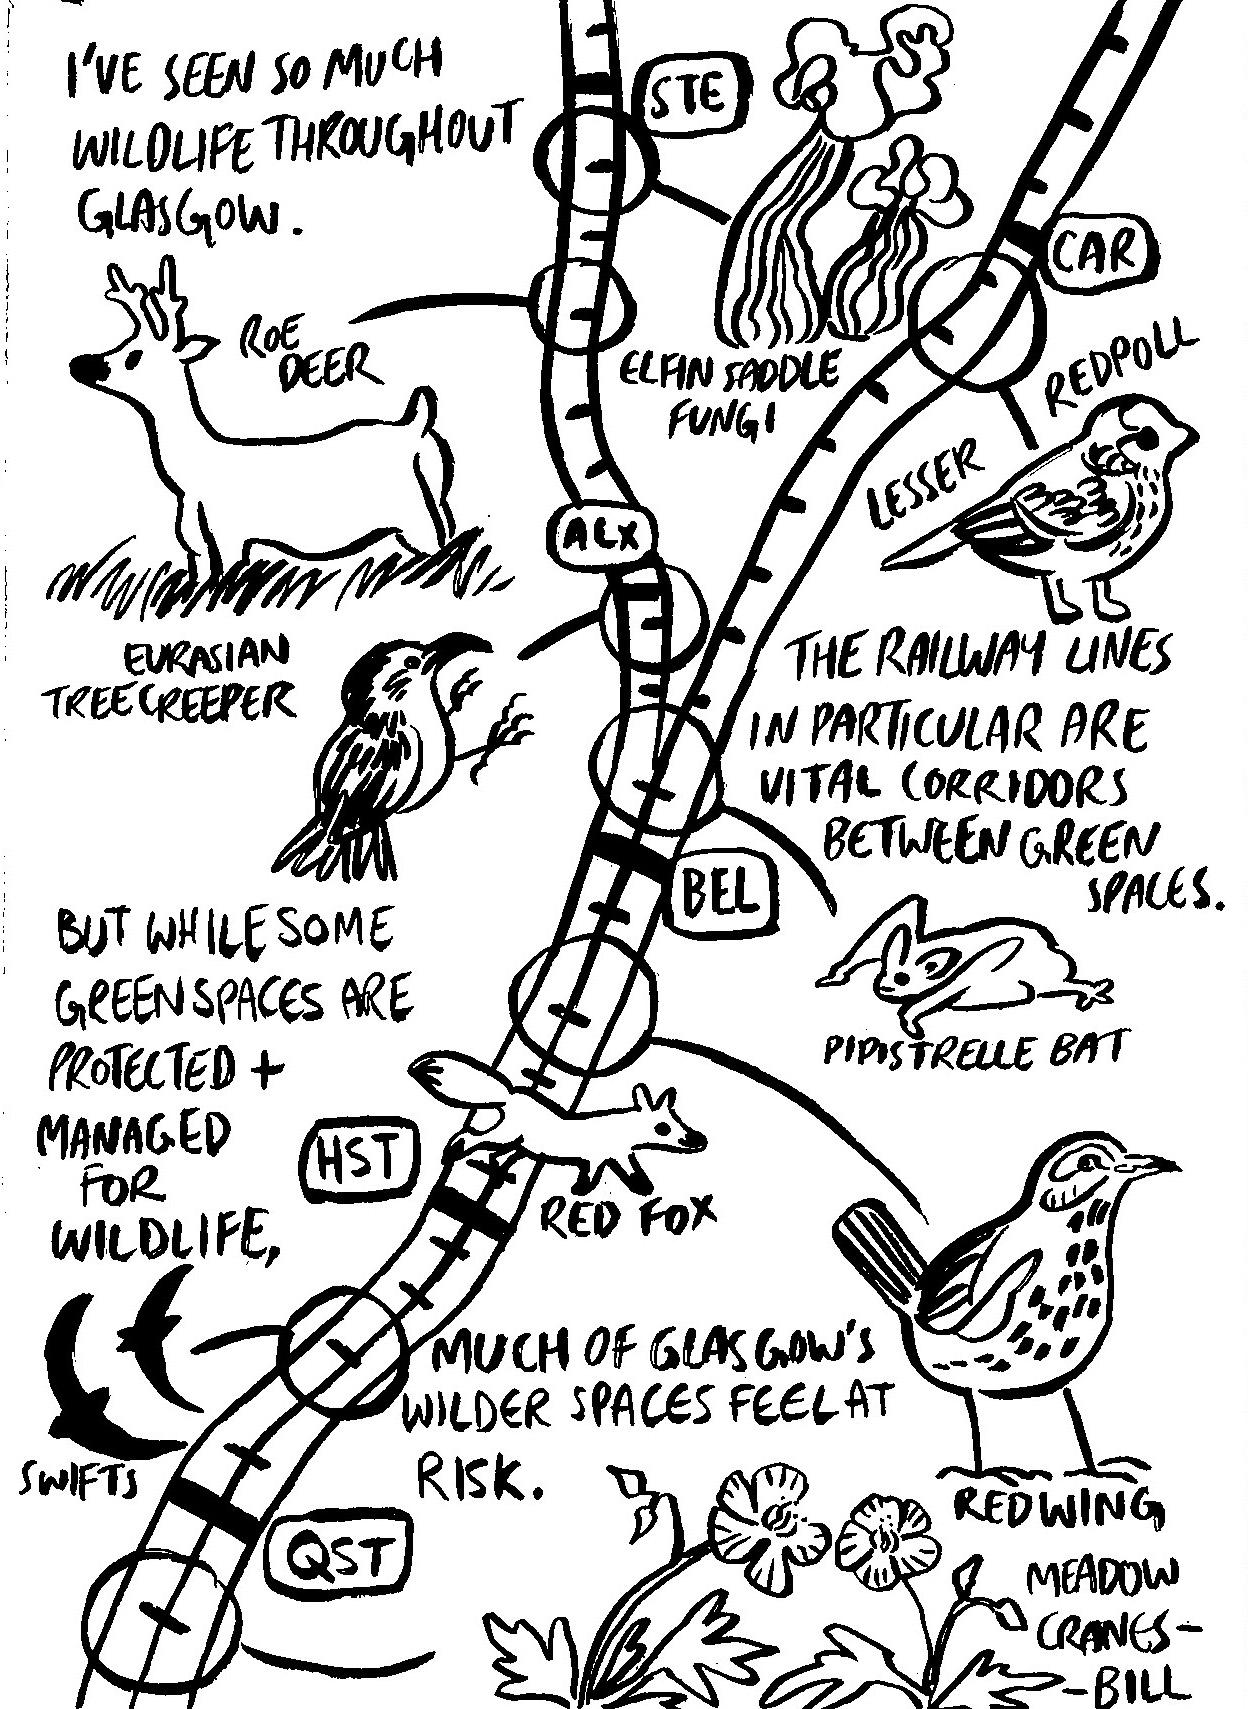 I'VE SEEN SO MUCH
WILDLIFE THROUGHOUT
GLASGOW.
STE
CAR
ROE
DEER
ELFIN SADDLE
FUNGI
LESSER REDPOLL
ALX
EURASIAN
TREECREEPER
THE RAILWAY LINES
IN PARTICULAR ARE
VITAL CORRIDORS
BETWEEN GREEN
SPACES.
BEL
PIPISTRELLE BAT
BUT WHILE SOME
GREENSPACES ARE
PROTECTED +
MANAGED
FOR
WILDLIFE,
HST
RED FOX
MUCH OF GLASGOW'S
WILDER SPACES FEEL AT
RISK.
SWIFTS
QST
REDWING
MEADOW
CRANES-
-BILL